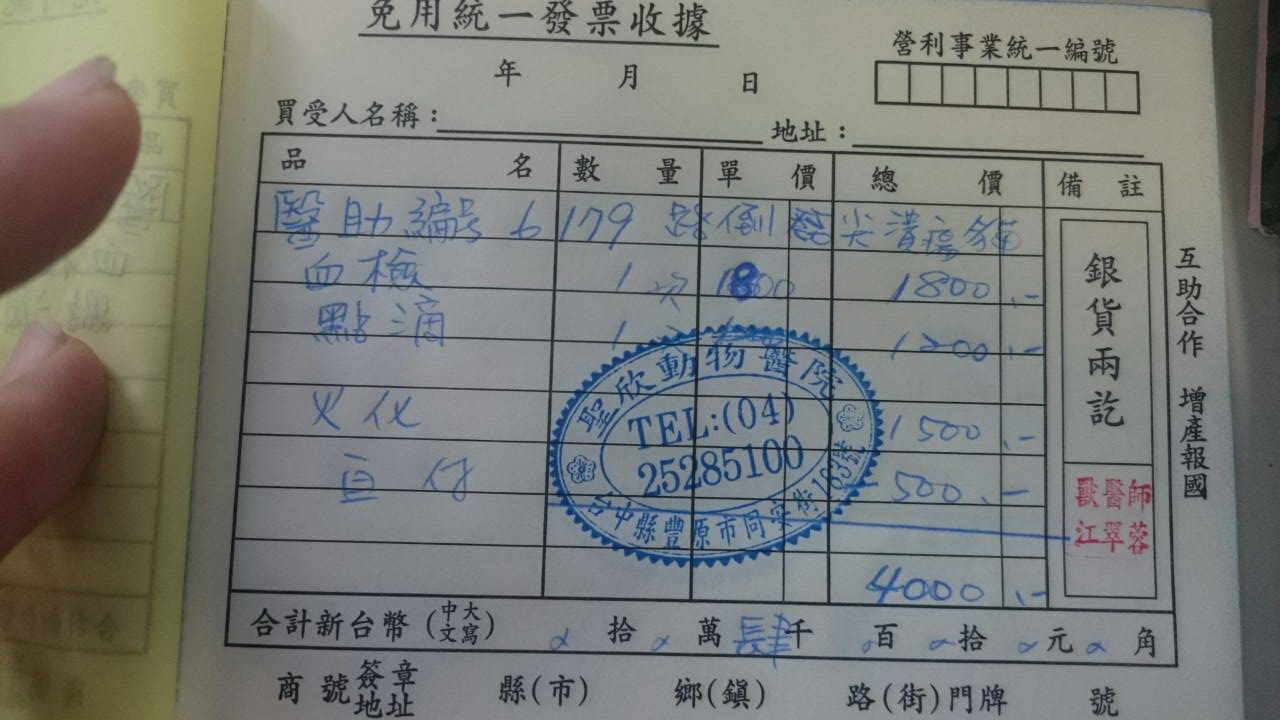 免用統一發票收據
營利事業統一編號
年 月 日
買受人名稱： 地址：
品名 數量 單價 總價 備註
醫助編號 6179 路倒 尖潰瘍貓
血檢 1 次 1800 1800.-
點滴 1 1200.-
火化 1500.-
自付 500.-
4000.-
銀貨兩訖
獸醫師
江翠蓉
互助合作 增產報國
聖欣動物醫院
TEL:(04)
25285100
台中縣豐原市同安街183號
合計新台幣(中文大寫) 拾 萬 肆千 百 拾 元 角
商號簽章地址 縣(市) 鄉(鎮) 路(街)門牌 號